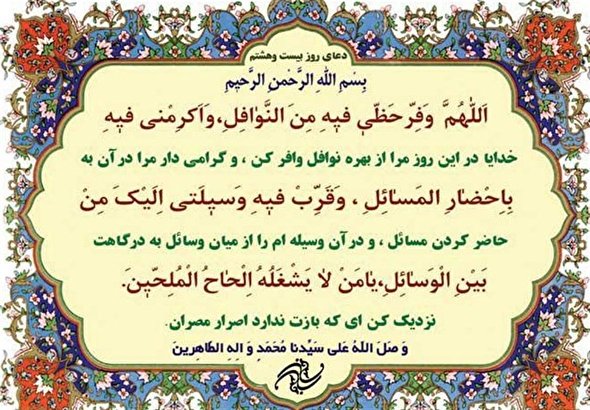 دعای روز بیست وهشتم
بِسْمِ اللهِ الرَّحْمنِ الرَّحیمِ
اَللّٰهُمَّ وَفِّرْ حَظّی فیهِ مِنَ النَّوٰافِلِ،وَاَکرِمْنی فیهِ
خدایا در این روز مرا از بهره نوافل وافر کن ، و گرامی دار مرا در آن به
بِاِحْضٰارِ المَسٰائِلِ ، وَقَرِّبْ فیهِ وَسیلَتی اِلَیْکَ مِنْ
حاضر کردن مسائل ، و در آن وسیله ام را از میان وسائل به درگاهت
بَیْنِ الْوَسٰائِلِ،یٰامَنْ لٰا یشْغَلُهُ اِلْحٰاحُ الْمُلحّینَ.
نزدیک کن ای که بازت ندارد اصرار مصران.
وَ صَلَ اللهُ عَلی سَیِّدِنا مُحَمَدٍ وَ الِهِ الطّاهِرینَ